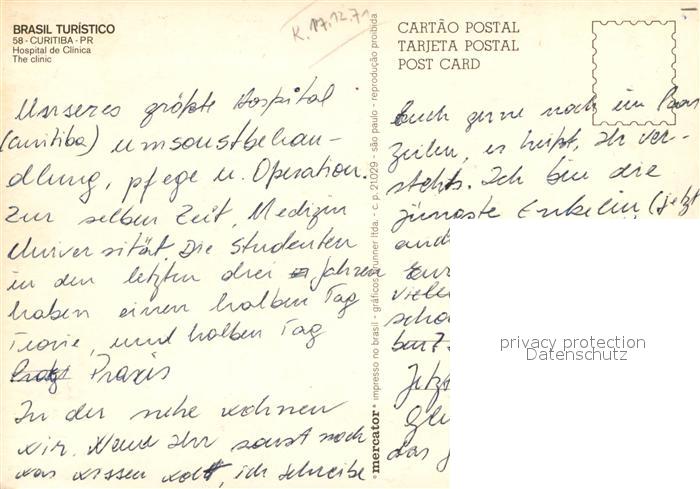 BRASIL TURÍSTICO
58 - CURITIBA - PR
Hospital de Clínica
The clinic
K. 17.12.71
CARTÃO POSTAL
TARJETA POSTAL
POST CARD
Unseres größte Hospital
(Curitiba) umsonstbehan-
dlung, pfege u. Operation.
Zur selben Zeit, Medizin
Universität. Die Studenten
in den letzten drei Jahren
haben einen halben Tag
Teorie, und halben Tag
Praxis
In der nehe wohnen
wir. Wenn Ihr sonst noch
was wissen wollt, ich schreibe
Euch gerne noch ein Paar
Zeilen, es heißt, Ihr ver-
stehts. Ich bin die
jüngste Enkelin, (jetzt
and
Eur
viele
scho
Jetzt
Glü
das
mercator impresso no brasil - gráficos brunner ltda. - c. p. 21.029 - são paulo - reprodução proibida
privacy protection
Datenschutz